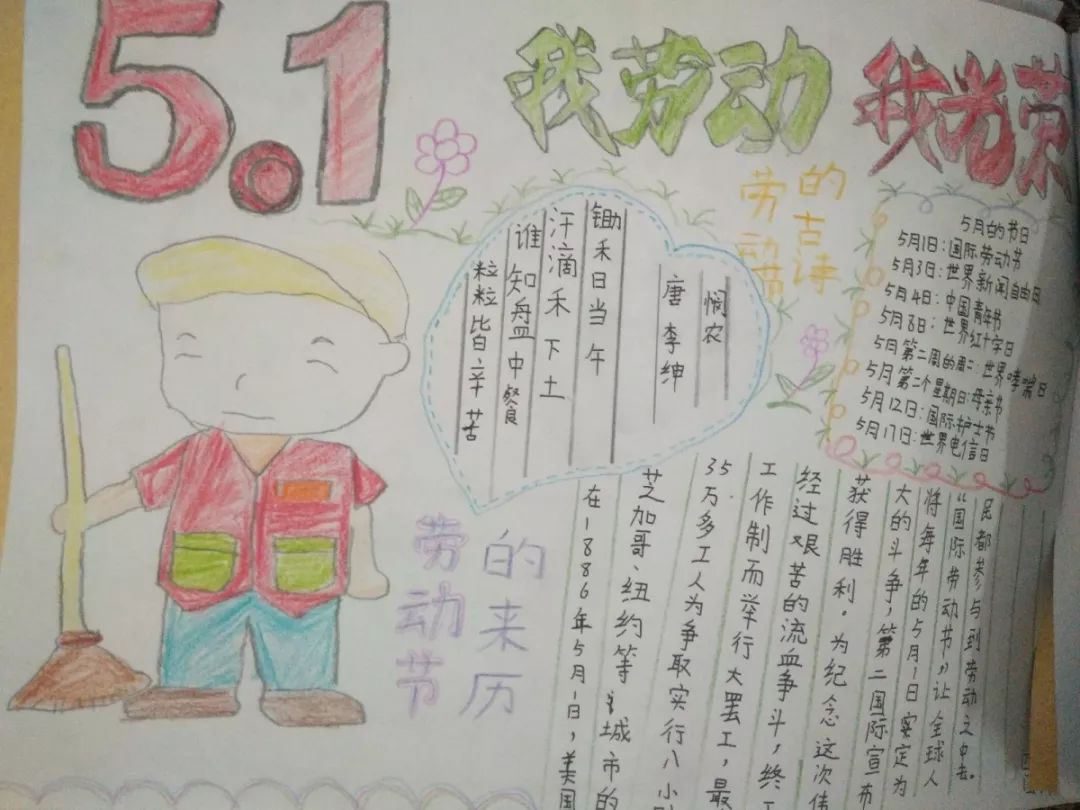 5.1
我劳动
我光荣
劳动节
的古诗
悯农
唐 李绅
锄禾日当午
汗滴禾下土
谁知盘中餐
粒粒皆辛苦
5月的节日
5月1日:国际劳动节
5月3日:世界新闻自由日
5月4日:中国青年节
5月8日:世界红十字日
5月第二周的周二:世界哮喘日
5月第二个星期日:母亲节
5月12日:国际护士节
5月17日:世界电信日
劳动节
的来历
在1886年5月1日,美国
芝加哥、纽约等城市的
35万多工人为争取实行八小
工作制而举行大罢工,最
经过艰苦的流血争斗,终
获得胜利。为纪念这次伟
大的斗争,第二国际宣布
将每年的5月1日实定为
“国际劳动节”,让全球人
民都参与到劳动之中去。